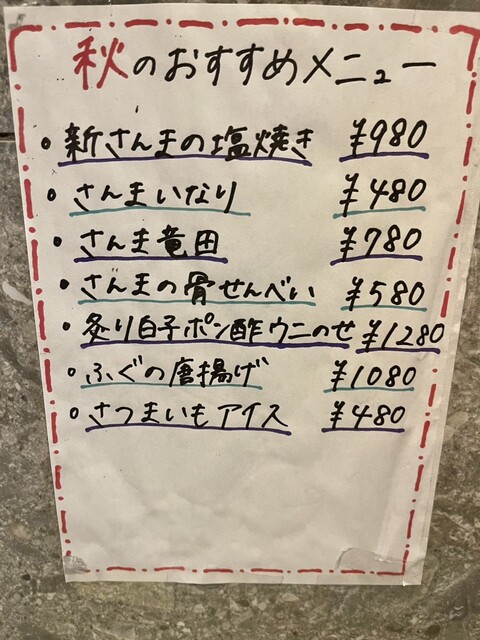 秋のおすすめメニュー
・新さんまの塩焼き ¥980
・さんまいなり ¥480
・さんま竜田 ¥780
・さんまの骨せんべい ¥580
・炙り白子ポン酢ウニのせ ¥1280
・ふぐの唐揚げ ¥1080
・さつまいもアイス ¥480